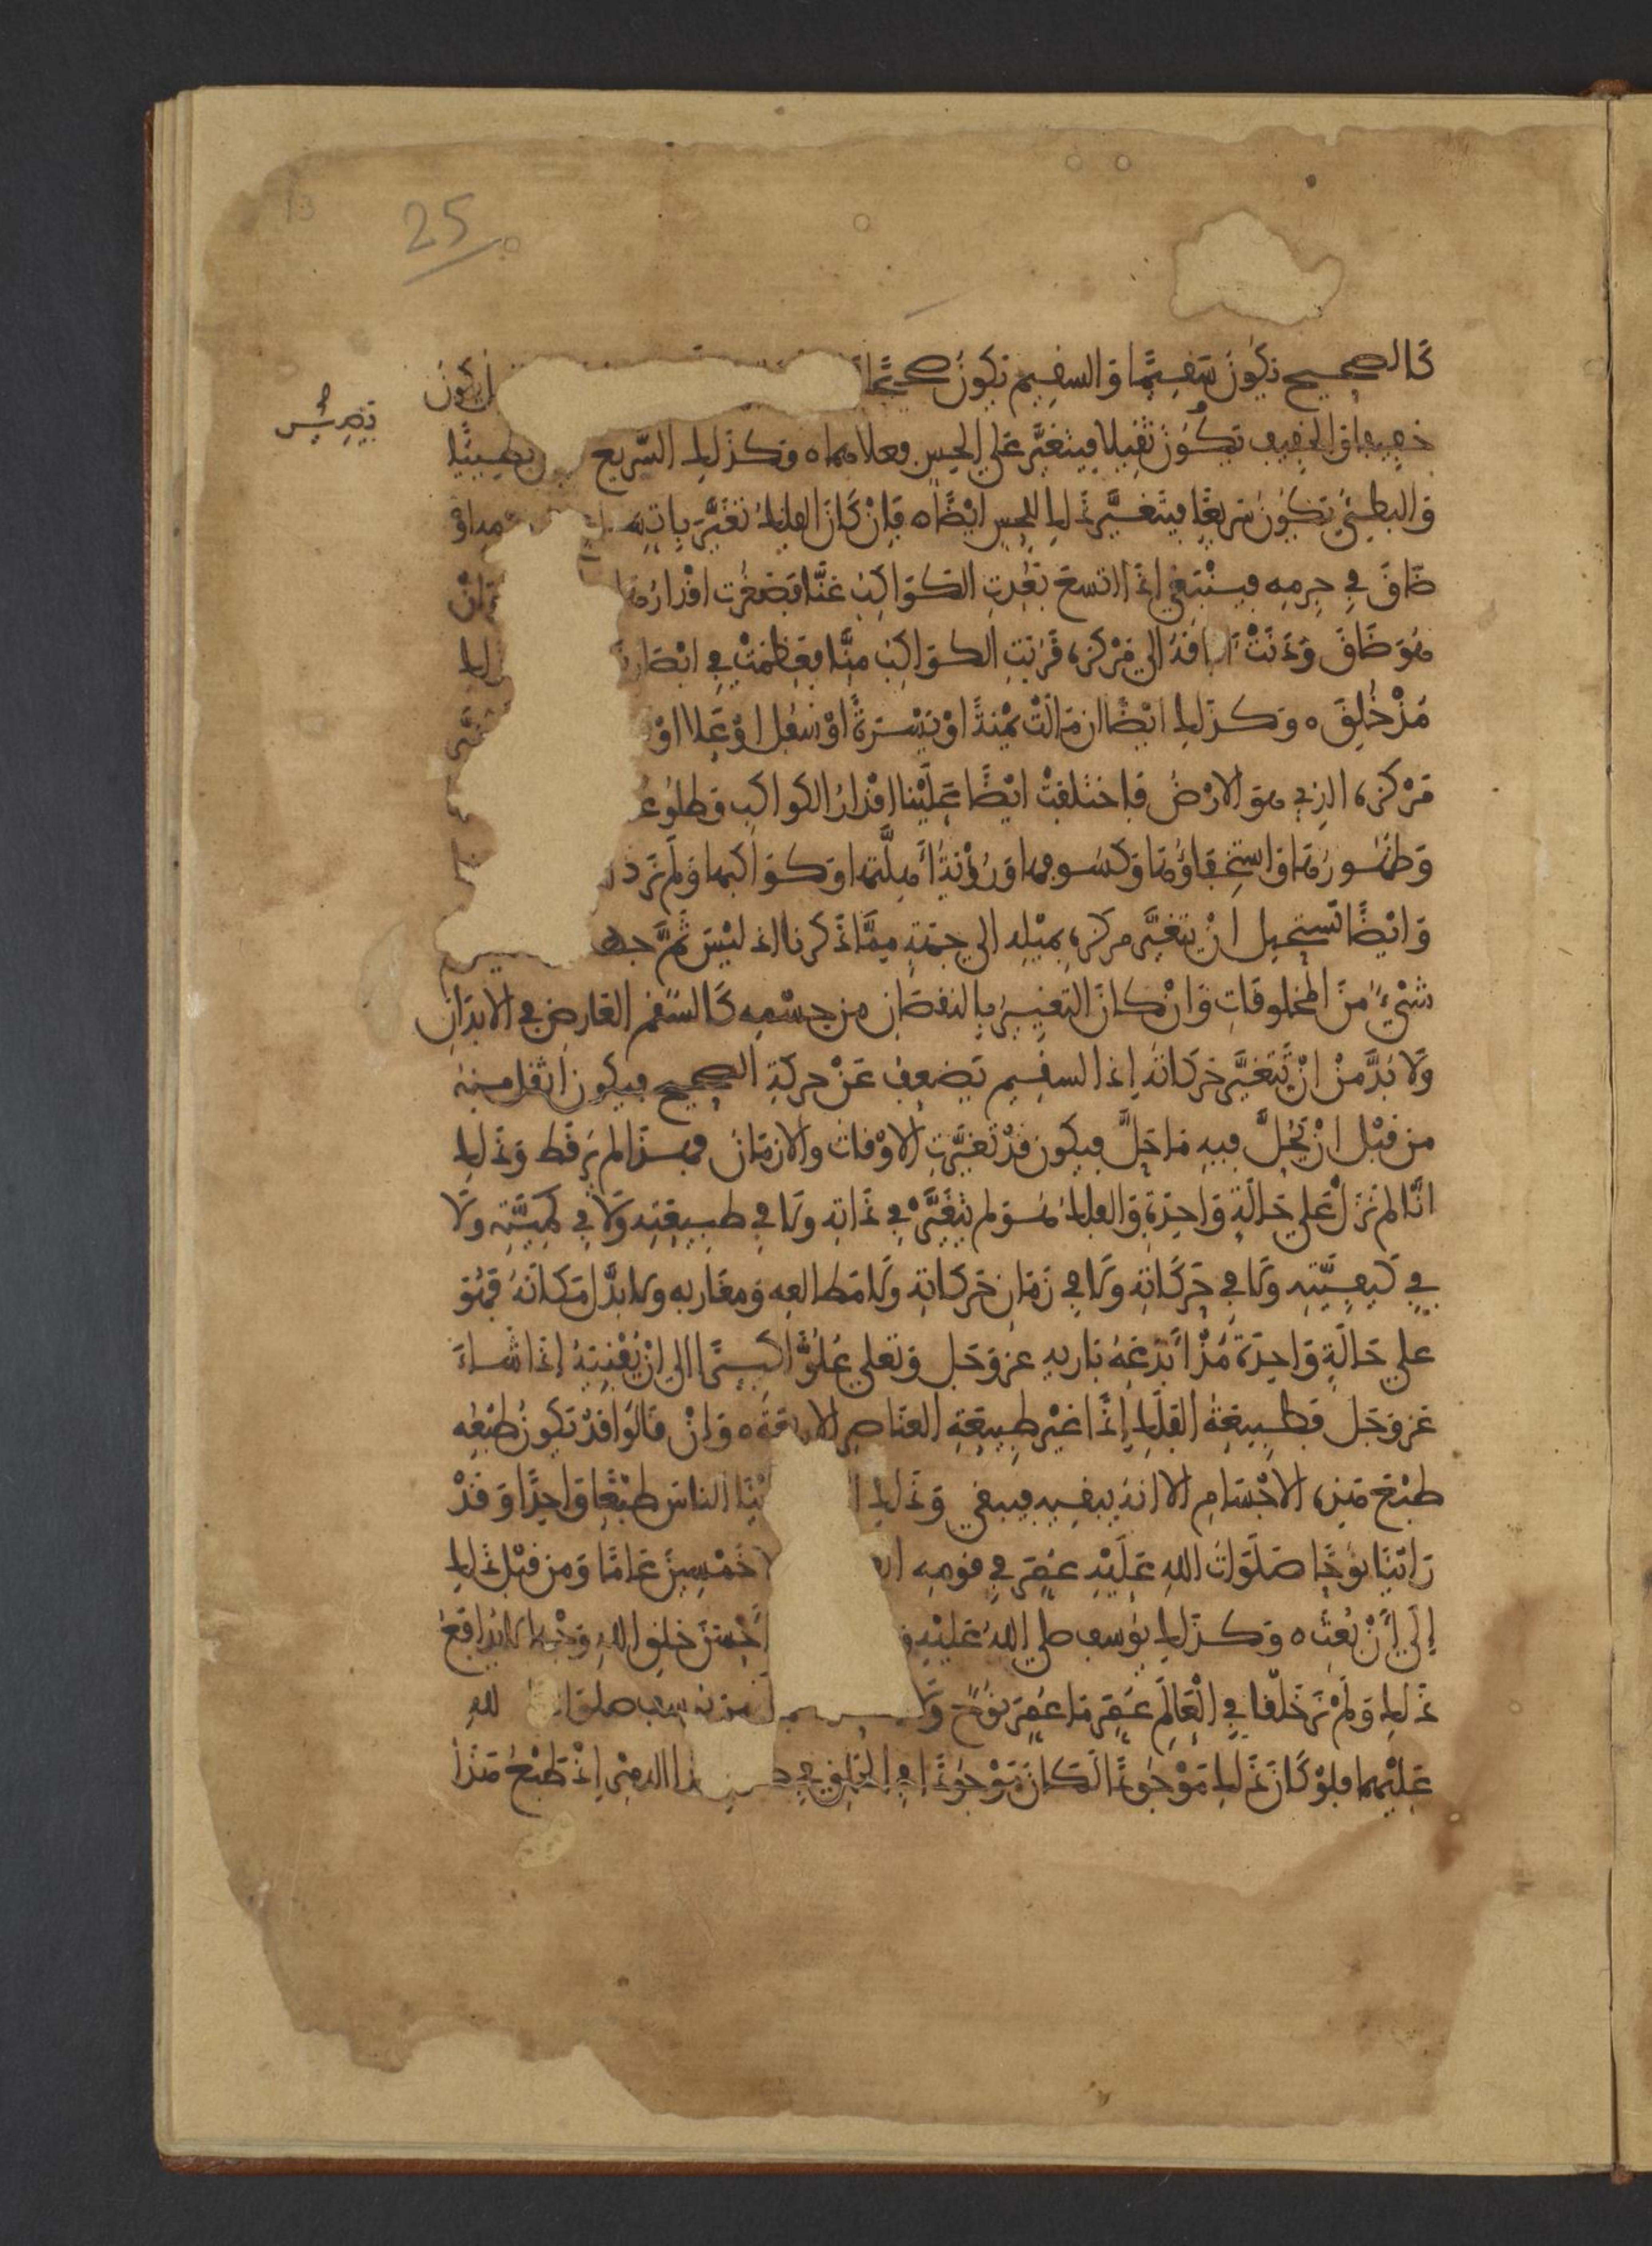 25
كَالصحيح يكون سَقِيمًا وَالسقيم يكون صحيحًا يكونُ
خفيفا والخفيف يَكُونُ ثقيلا فيتغيَّر على الحس فعلاهما ٥ وَكذلك السَّريع بطيئًا
وَالبطيئُ يَكُونُ سَريعًا فيتغيَّر ذلك للحس ايْضًا ٥ فَإنْ كَانَ الفلك تغَيَّرَ بِاتِّ
ضَاقَ في جِرمه فينْبَغي اذا اتسعَ بَعُدتِ الكَوَاكِبُ عَنَّا فصَغُرت اقْدارُهَا وَانْ
هُوَ ضَاقَ وَدَنَتْ الى مَرْكزه قَرُبَتِ الكَوَاكِبُ مِنَّا فعَظمَتْ في ابْصَارنَا ذلك
مُذْ خُلِقَ ٥ وَكذلك ايْضًا ان مَالَتْ يَمْنَةً اوْ يَسْرَةً اوْ سفلا اوْ عَلا اوْ
مَرْكزه الذِي هو الارْضُ فاختلفتْ ايْضًا عَلَيْنا اقْدارُ الكواكب وَطلُوعُ
وَظهُورُهَا وَاستِخفَاؤُهَا وَكسُوفها وَرُؤْيَةُ أهِلَّتها وَكوَاكبها وَلَمْ نَرَ ذ
وَايْضًا تستحيل انْ يتغيَّر مركزه بِمَيْلِه الى جهَةٍ مِمَّا ذَكرنا اذ ليْسَ ثَمَّ جهة
شَيْءٌ مِنَ المخلوقَاتِ وَانْ كانَ التغييرُ بِالنقصَان من جسْمِه كَالسّقم العَارض في الابدَانِ
وَلا بُدَّ مِنْ انْ تَتغيَّر حَرَكاتهُ اذ السقيم يَضعف عَنْ حركَةِ الصحيح فيكون اثقل مِنهُ
من قبْل انْ يَحُلَّ فيهِ مَا حَلَّ فيكون قَدْ تَغيَّرتِ الاوْقاتُ والازمَانُ فهذا لم نَرَ قط وَذلك
انَّا لم نَزَلْ عَلى حَالَةٍ وَاحِدَةٍ وَالفلكُ هُوَ لم يَتَغيَّرْ في ذَاته ولا في طبيعَتِه وَلا في كَمِيَّتِه وَلا
في كَيْفيَّتِه ولا في حَرَكَاتِهِ ولا في زَمَانِ حَرَكَاتِهِ ولا مَطالعِه وَمغَاربه ولا بَدَّل مَكَانَهُ فهُو
على حَالَةٍ وَاحِدَةٍ مُذْ أبْدَعَهُ باريه عز وَجَل وَتعلى عُلُوًّا كبيرًا الى انْ يُفْنِيَهُ اذَا شَاءَ
عَز وَجَل فطبِيعَةُ الفَلَكِ إذًا غيْر طبِيعَةِ العنَاصِر الاربعَة ٥ وَانْ قَالُوا قَدْ تكونُ طبْعُه
طبْعَ هَذِه الاجْسَام الا انهُ يبقيه فيبقى وَذلك ا يْنَا الناسَ طبْعًا وَاحِدًا وَقدْ
رَايْنَا نُوحًا صَلوَاتُ اللهِ عَلَيْهِ عُمِّرَ في قومِه ال خَمْسِينَ عَامًا وَمِنْ قبْل ذلك
إلى أنْ بُعِثَ ٥ وَكذلك يوسف صلى اللهُ عَلَيْهِ أحْسَنَ خَلق اللهِ وَجْها
ذلك وَلمْ نَرَ خَلْقًا في الْعَالَم عُمِّرَ مَا عُمِّرَ نُوحٌ وَلا من يوسف صلوَا اللهِ
عَلَيْهما فلوْ كَانَ ذلك مَوْجُودًا لكَانَ مَوْجُودًا في الخلق في اذْ طبْعُ هَذا